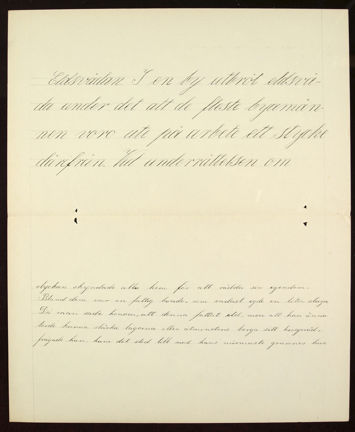 Eldsvådan I en by utbröt eldsvå-
da under det att de flesta byamän-
nen voro ute på arbete ett stycke
därifrån. Vid underrättelsen om
olyckan skyndade alla hem för att rädda sin egendom.
Bland dem var en fattig bonde, som endast egde en liten stuga
Då man sade honom, att denna fattat eld, men att han ännu
kunde
frågade han, huru det stod till med hans närmaste grannes hus